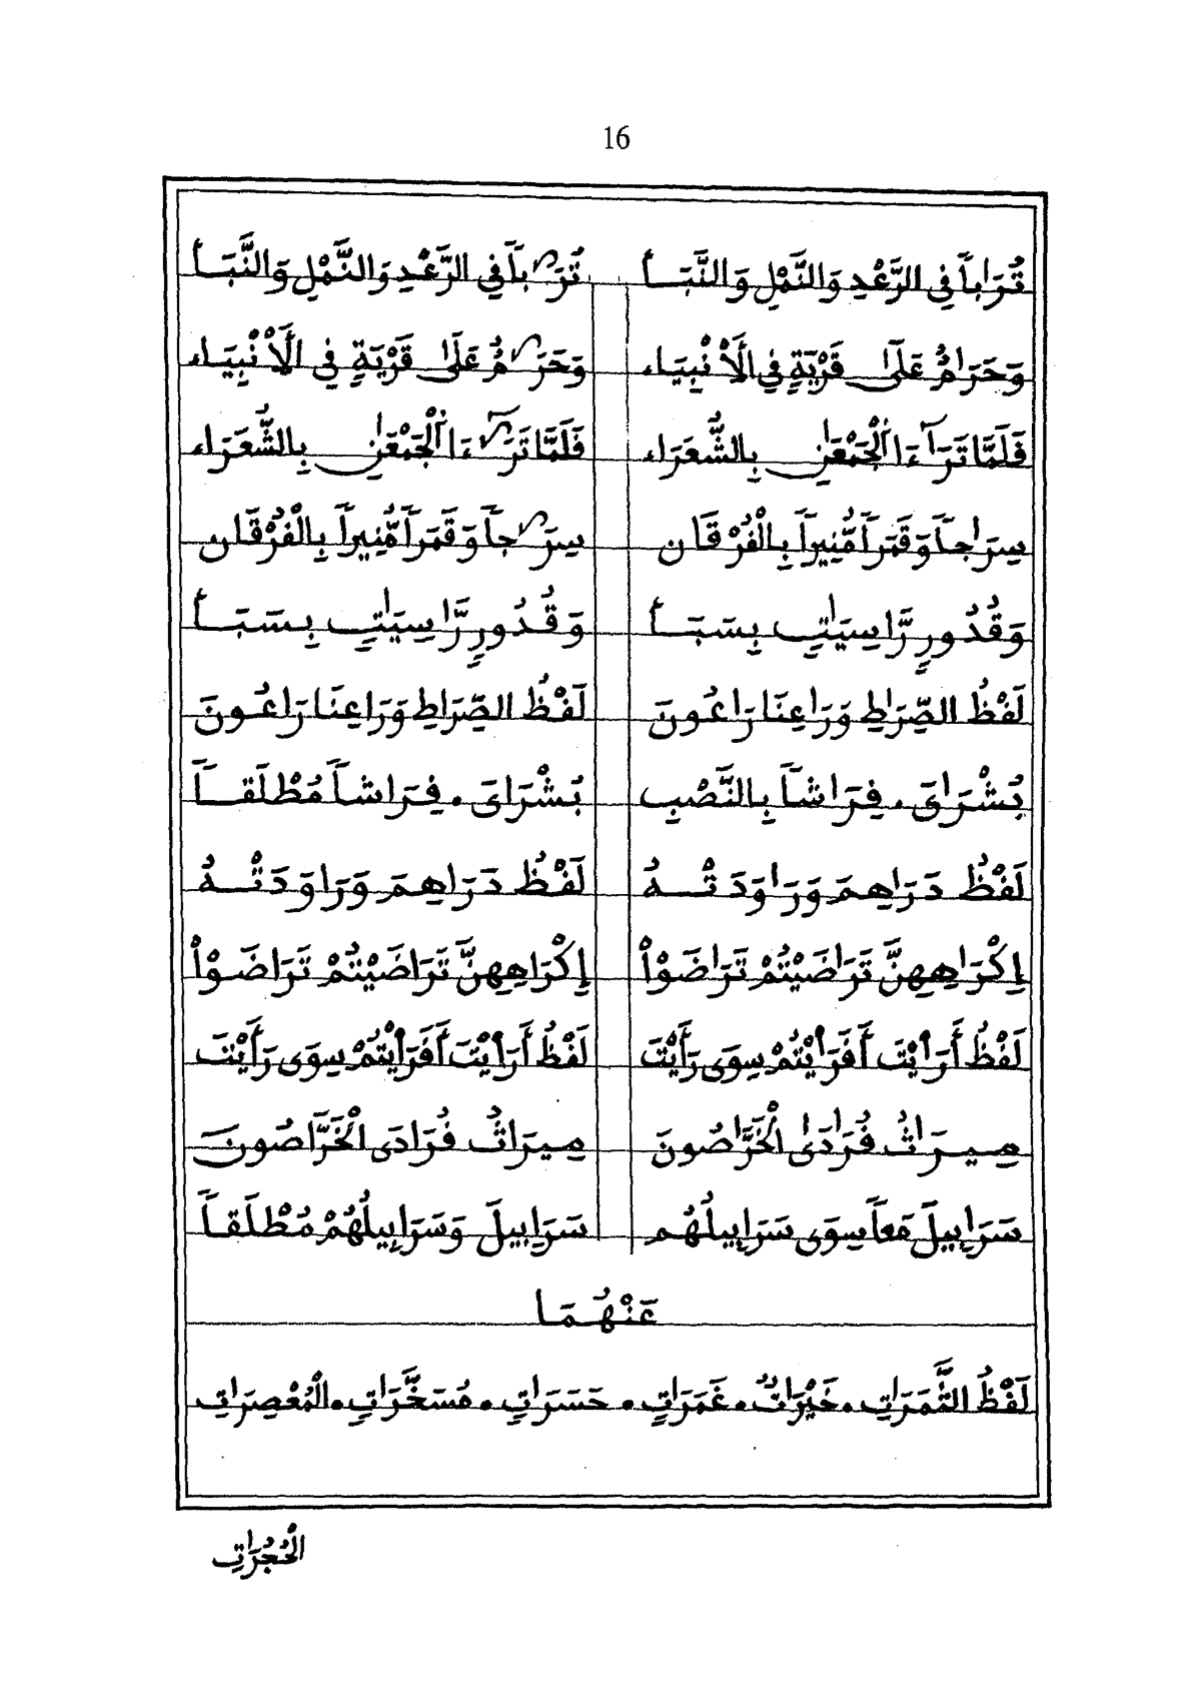 16
تُرَاباً فِي الرَّعْدِ وَالنَّمْلِ وَالنَّبَأ تُرَٰباً فِي الرَّعْدِ وَالنَّمْلِ وَالنَّبَأ
وَحَرَامٌ عَلَىٰ قَرْيَةٍ فِي الَأنْبِيَاء وَحَرَٰمٌ عَلَىٰ قَرْيَةٍ فِي الَأنْبِيَاء
فَلَمَّا تَرَآءَا اَلْجَمْعَٰنِ بِالشُّعَرَاء فَلَمَّا تَرَٰٓءَا اَلْجَمْعَٰنِ بِالشُّعَرَاء
سِرَاجاً وَقَمَراً مُّنِيراً بِالْفُرْقَان سِرَٰجاً وَقَمَراً مُّنِيراً بِالْفُرْقَان
وَقُدُورٍ رَّاسِيَٰتٍ بِسَبَأ وَقُدُورٍ رَّاسِيَٰتٍ بِسَبَأ
لَفْظُ الصِّرَٰطِ وَرَٰعِنَا رَٰعُونَ لَفْظُ الصِّرَاطِ وَرَاعِنَا رَاعُونَ
بُشْرَٰىَ . فِرَٰشاً بِالنَّصْبِ بُشْرَاىَ . فِرَاشاً مُطْلَقاً
لَفْظُ دَرَٰهِمَ وَرَٰوَدَتْهُ لَفْظُ دَرَاهِمَ وَرَاوَدَتْهُ
إِكْرَٰهِهِنَّ تَرَٰضَيْتُمْ تَرَٰضَوْاْ إِكْرَاهِهِنَّ تَرَاضَيْتُمْ تَرَاضَوْاْ
لَفْظُ أَرَٰيْتَ أَفَرَٰيْتُمْ سِوَى رَأَيْتَ لَفْظُ أَرَايْتَ أَفَرَايْتُمْ سِوَى رَأَيْتَ
مِيرَٰثُ فُرَٰدَىٰ الْخَرَّٰصُونَ مِيرَاثُ فُرَادَى الْخَرَّاصُونَ
سَرَٰبِيلَ مَعاً سِوَى سَرَٰبِيلُهُم سَرَابِيلَ وَسَرَابِيلُهُمْ مُطْلَقاً
عَنْهُمَا
لَفْظُ الثَّمَرَٰتِ . خَيْرَٰتٌ . غَمَرَٰتِ . حَسَرَٰتٍ . مُسَخَّرَٰتٍ . الْمُعْصِرَٰتِ
الْحُجُرَٰتِ